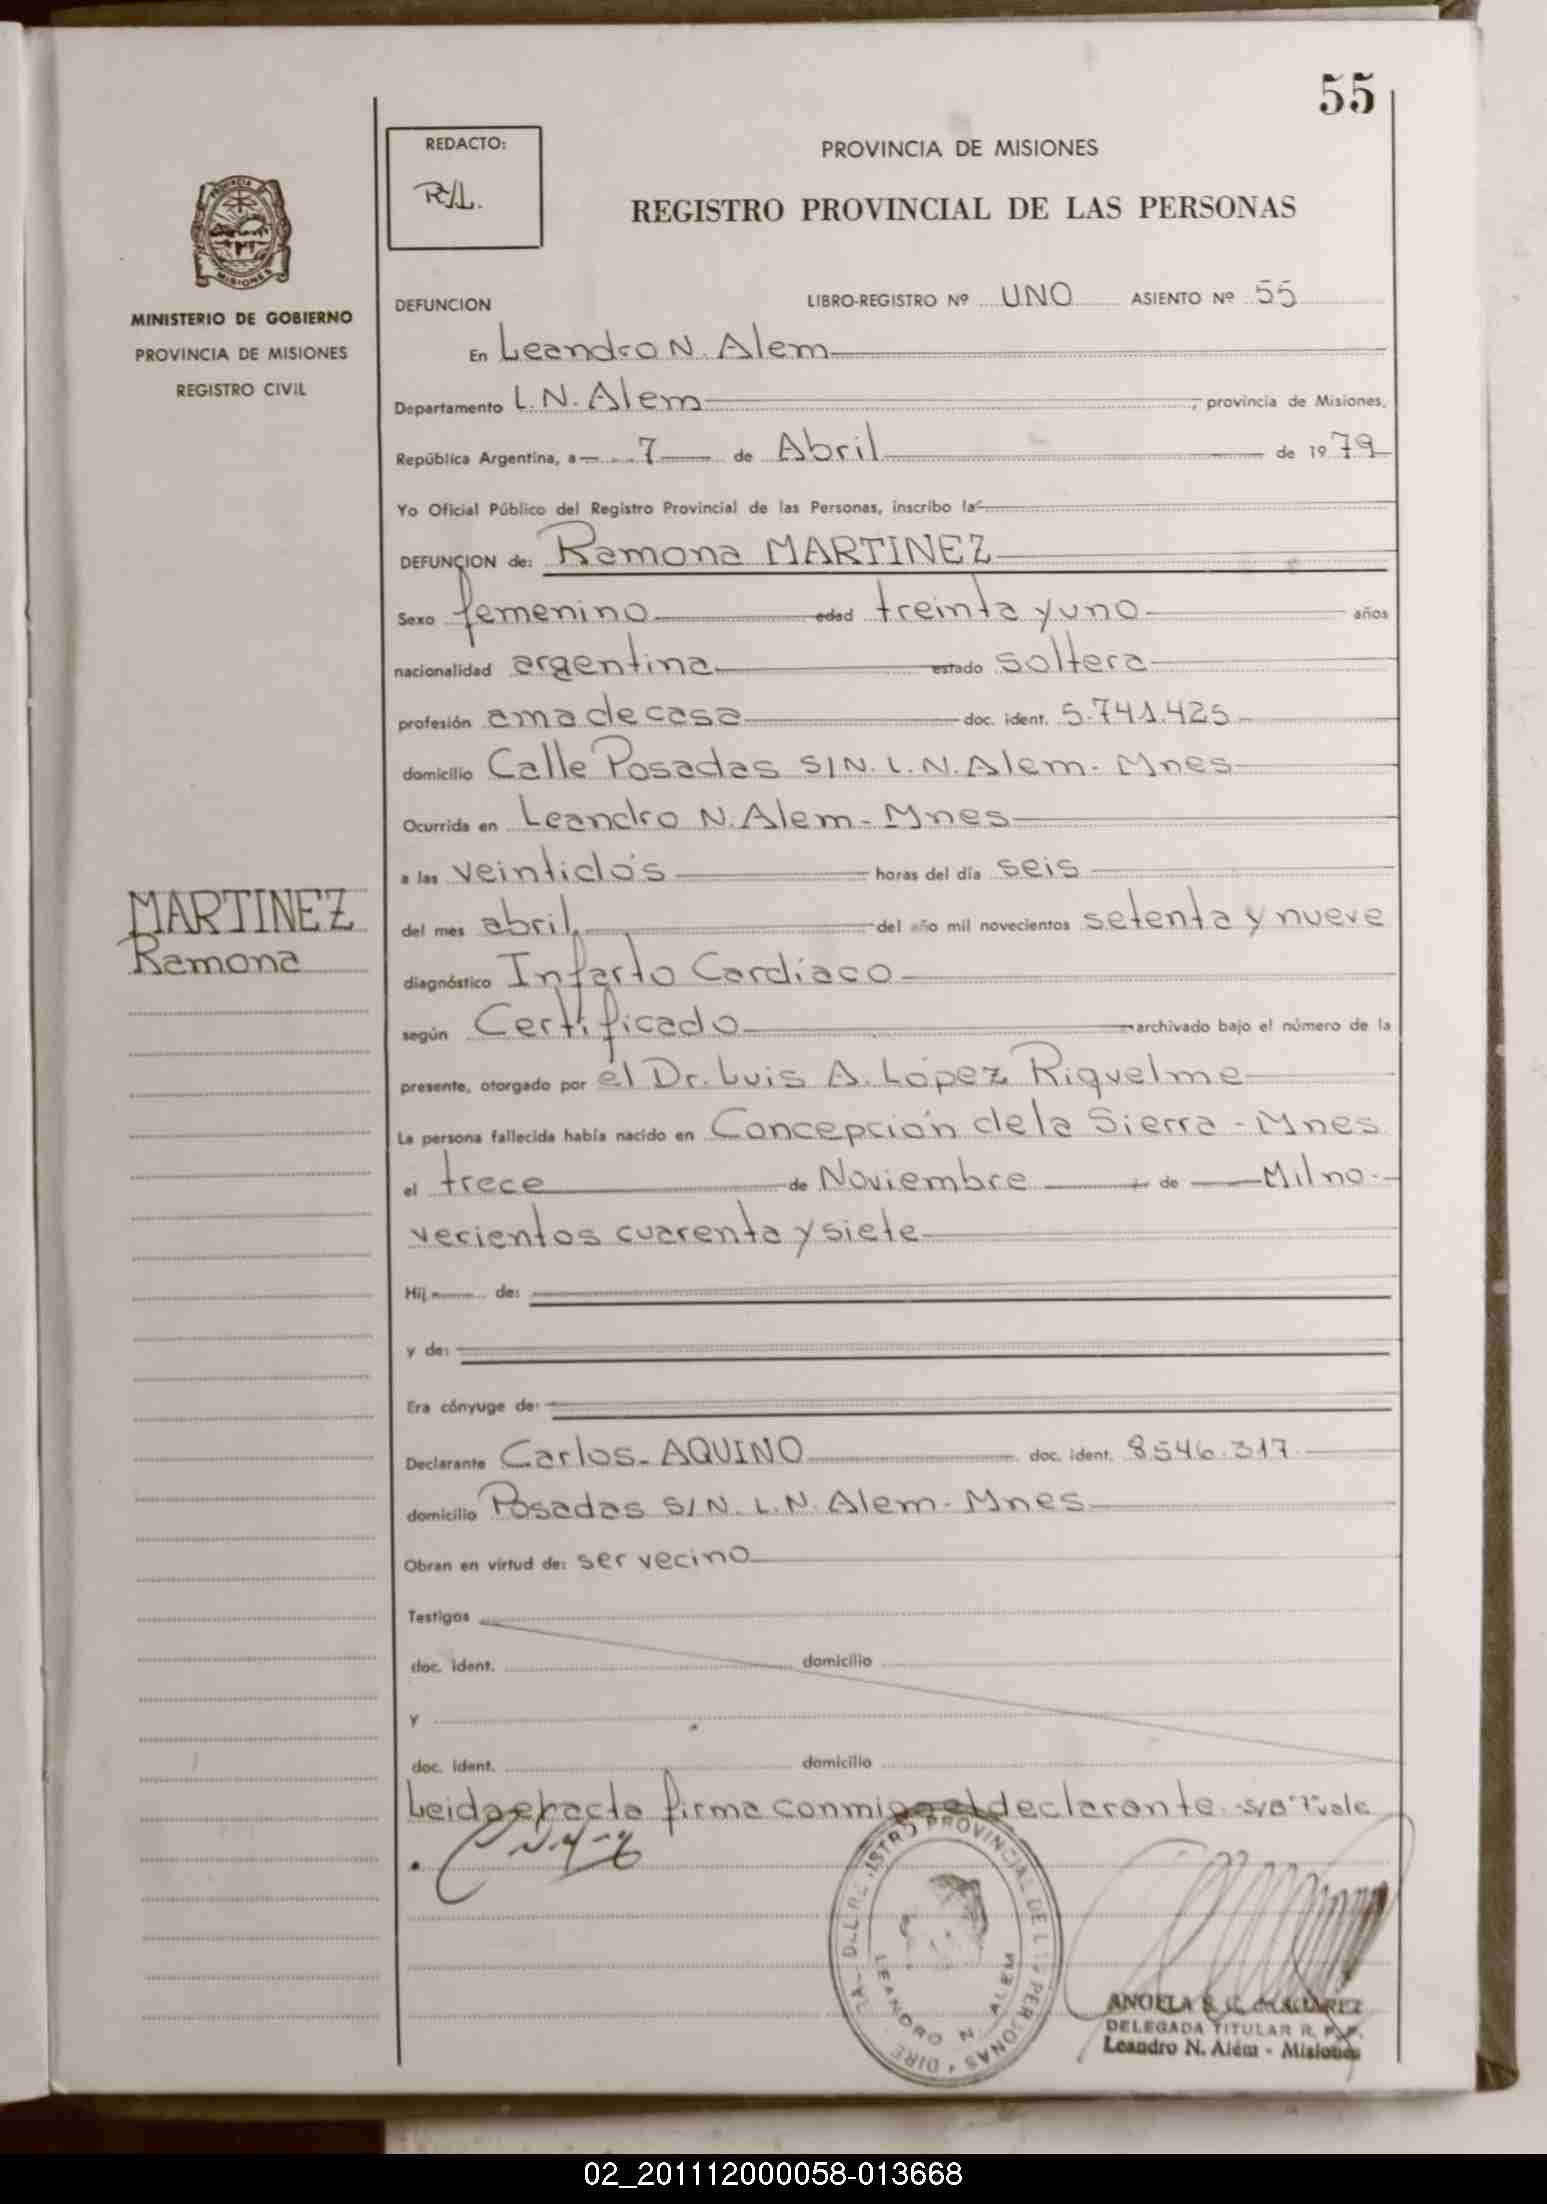 55
REDACTO:
R/L.
PROVINCIA DE MISIONES
REGISTRO PROVINCIAL DE LAS PERSONAS
MINISTERIO DE GOBIERNO
PROVINCIA DE MISIONES
REGISTRO CIVIL
DEFUNCION LIBRO-REGISTRO Nº UNO ASIENTO Nº 55
En Leandro N. Alem
Departamento L.N. Alem, provincia de Misiones,
República Argentina, a 7 de Abril de 1979
Yo Oficial Público del Registro Provincial de las Personas, inscribo la
DEFUNCION de: Ramona MARTINEZ
Sexo femenino edad treinta y uno años
nacionalidad argentina estado soltera
profesión ama de casa doc. ident. 5.741.425
domicilio Calle Posadas S/N. L.N. Alem - Mnes
Ocurrida en Leandro N. Alem - Mnes
a las veintidós horas del día seis
del mes abril del año mil novecientos setenta y nueve
MARTINEZ
Ramona
diagnóstico Infarto Cardíaco
según Certificado archivado bajo el número de la
presente, otorgado por el Dr. Luis A. López Riquelme
La persona fallecida había nacido en Concepción de la Sierra - Mnes
el trece de Noviembre de Mil no-
vecientos cuarenta y siete
Hij de:
y de:
Era cónyuge de:
Declarante Carlos - AQUINO doc. ident. 8546.317
domicilio Posadas S/N. L.N. Alem - Mnes
Obran en virtud de: ser vecino
Testigos
doc. ident. domicilio
y
doc. ident. domicilio
Leida el acta firma conmigo el declarante
REGISTRO PROVINCIAL DE LAS PERSONAS
LEANDRO N. ALEM
ANGELA S. C.
DELEGADA TITULAR R. P. P.
Leandro N. Além - Misiones
02_201112000058-013668